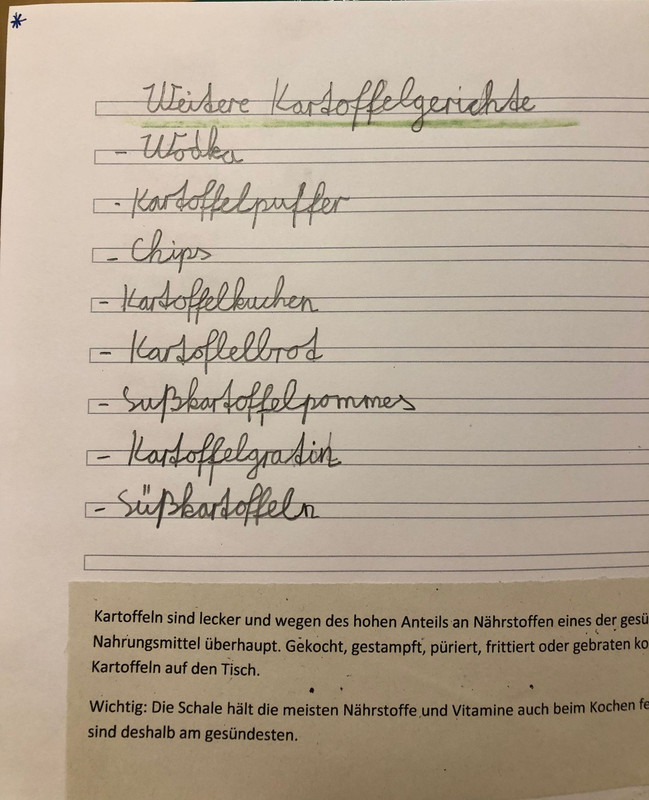 Weitere Kartoffelgerichte
- Wodka
- Kartoffelpuffer
- Chips
- Kartoffelkuchen
- Kartoflelbrot
- Sußkartoffelpommes
- Kartoffelgratin
- Süßkartoffeln
Kartoffeln sind lecker und wegen des hohen Anteils an Nährstoffen eines der gesü
Nahrungsmittel überhaupt. Gekocht, gestampft, püriert, frittiert oder gebraten ko
Kartoffeln auf den Tisch.
Wichtig: Die Schale hält die meisten Nährstoffe und Vitamine auch beim Kochen fe
sind deshalb am gesündesten.